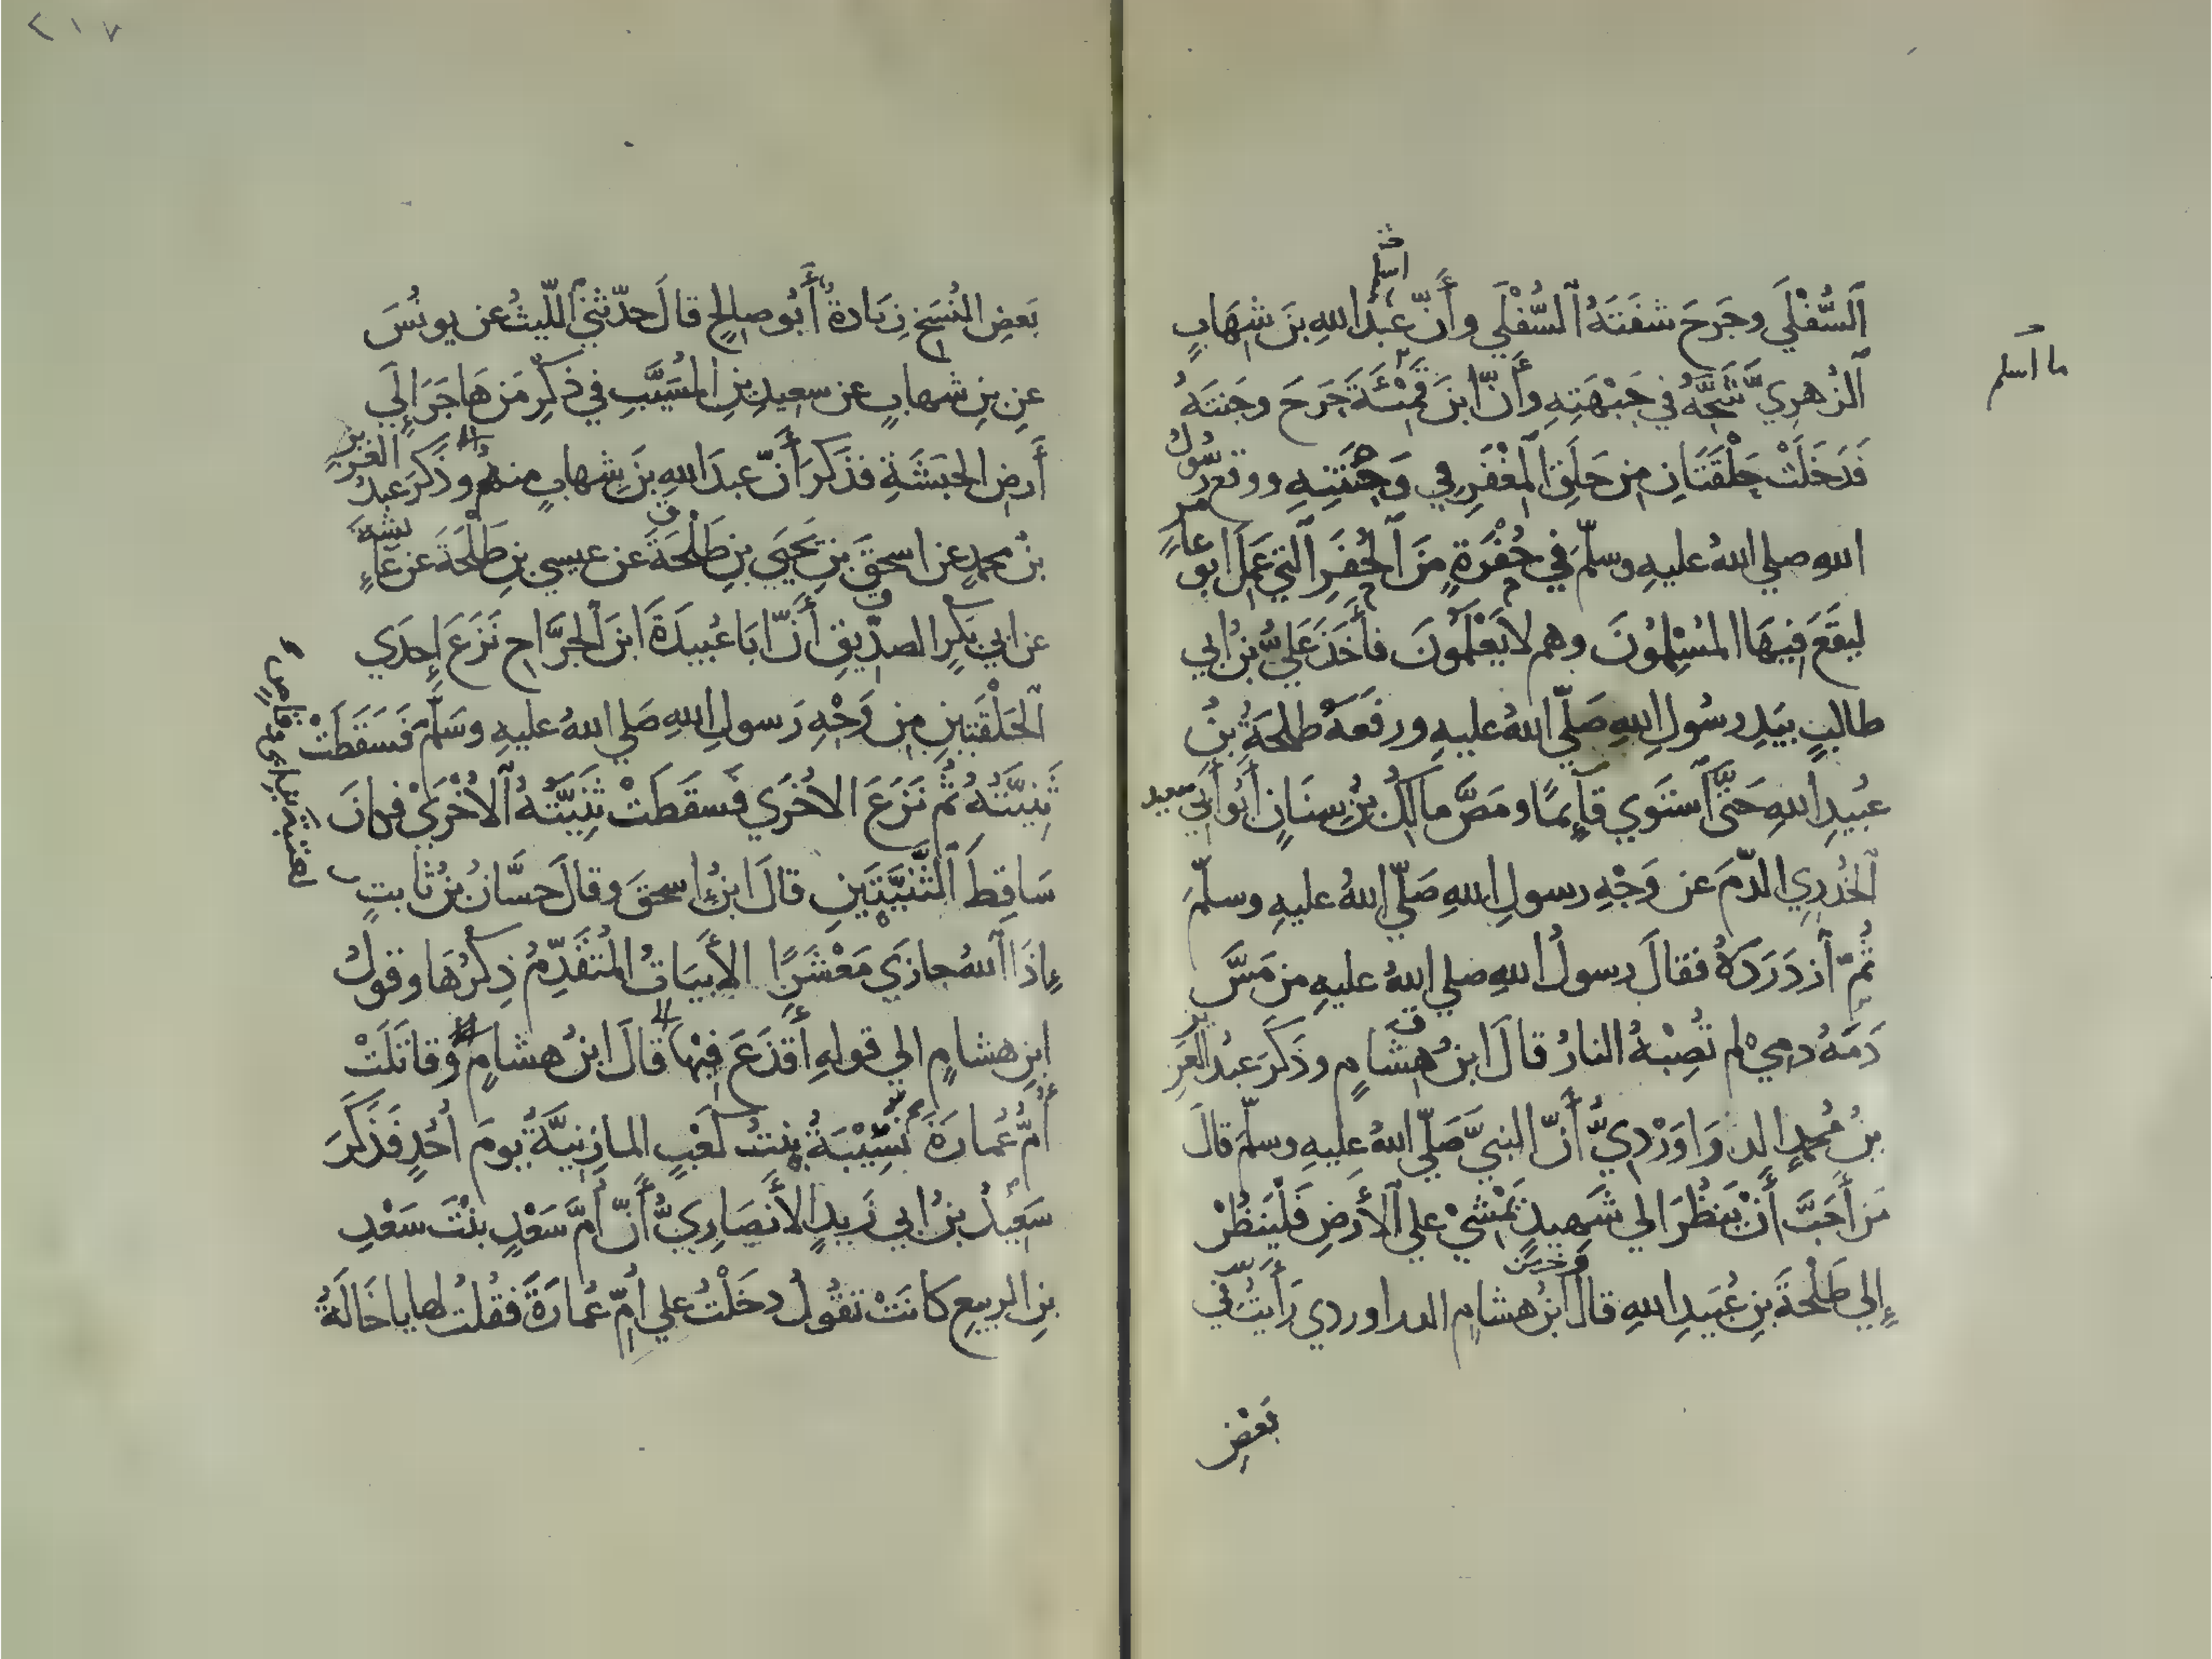 اسلم
السُّفْلَي وجَرَحَ شفَتَهُ السُّفْلَي وأَنّ عبدَ اللهِ بنَ شهَابٍ
ما اسلم
الزُهرِيَّ شَجَّهُ في جَبْهَتِهِ وأَنّ ابنَ قَمْئَةَ جَرَحَ وجَنتَهُ
فَدَخَلَتْ حَلْقَتَانِ مِن حَلَقِ المِغْفَرِ في وَجْنَتِهِ ووقع رسُولُ
اللهِ صلي اللهُ عليهِ وسلّمَ في حُفْرَةٍ مِنَ الحُفَرِ التي عَمِلَ ابو عامرٍ
ليقَعَ فيهَا المُسْلِمُونَ وهم لا يَعْلَمُونَ فأَخَذَ عَليُّ بنُ ابي
طالبٍ بيَدِ رسُولِ اللهِ صَلّي اللهُ عليهِ ورفَعَهُ طلحَةُ بنُ
عُبيدِ اللهِ حَتَّي استَوي قَآئِمًا ومَصَّ مالكُ بنُ سِنَانٍ أَبُو أَبي سعيد
الخُدرِي الدّمَ عن وَجْهِ رسولِ اللهِ صَلّي اللهُ عليهِ وسلّمَ
ثُمّ ازدَرَدَهُ فقالَ رسولُ اللهِ صلي اللهُ عليهِ من مَسَّ
دَمَهُ دمي لم تُصِبْهُ النارُ قالَ ابنُ هِشَامٍ وذَكَرَ عبدُ العَزِيز
بنُ مُحمدٍ الدرَاوَرْدِيُّ أَنّ النبيَّ صَلّي اللهُ عليهِ وسلّمَ قالَ
مَن أَحَبَّ أَنْ يَنظُرَ الي شَهيدٍ يَمْشيْ علي الأَرضِ فَلْيَنظُرْ
إلي طَلْحَةَ بنِ عُبَيدِ اللهِ قالَ ابنُ هشامٍ الدراوردي رَأَيتُ في
بَعْضِ
٢١٧
بَعضِ النُسَخِ زيَادةُ أَبُو صالحٍ قالَ حدّثني اللّيثُ عن يونُسَ
عنِ بنِ شهابٍ عن سعيدِ بنِ المُسَيَّبِ في ذكرِ مَن هَاجَرَ إلَي
أَرضِ الحَبَشَةِ فذكَرَ أَنّ عبدَ اللهِ بنَ شِهابٍ منهُم وذكَرَ عبدُ العزيز
بنُ محمدٍ عن اسحقَ بنِ يَحْيَي بنِ طَلْحَةَ عن عيسي بنِ طَلْحَةَ عن عَائشةَ
عن ابي بَكرٍ الصدّيقِ أَنّ ابَا عُبيدَةَ ابنَ الجرَّاحِ نَزَعَ إحِدَي
الحَلْقَتَينِ مِن وَجْهِ رَسولِ اللهِ صَلي اللهُ عليهِ وسَلَّمَ فَسَقَطَتْ
ثَنِيّتُهُ ثُم نَزَعَ الاُخرَي فَسقَطَتْ ثَنِيَّتُهُ الاُخْرَيْ فكانَ
سَاقِطَ الثَّنِيَّتَينِ قالَ ابنُ اسحقَ وقالَ حسَّانُ بنُ ثابتٍ
لعُتبةَ بنِ ابي وقاصٍ
إذَا اللهُ جازَي مَعْشَرًا الأَبيَاتُ المُتَقَدِّمُ ذِكرُهَا وقولُ
ابنِ هشامٍ الي قولهِ أَقذَعَ فيْها قالَ ابنُ هشامٍ وقاتَلَتْ
أُمُّ عُمارَةَ نُسَيْبَةُ بِنتُ كَعْبٍ المازِنيَّةُ يومَ اُحُدٍ فَذَكَرَ
سَعِيدُ بنُ ابي زَيدٍ الأَنصَارِيُّ أَنّ أُمَّ سَعْدٍ بنْتَ سَعْدِ
بنِ الربيعِ كانَتْ تقُولُ دخَلْتُ علي اُمّ عُمارَةَ فقُلتُ لها يا خَالَةُ